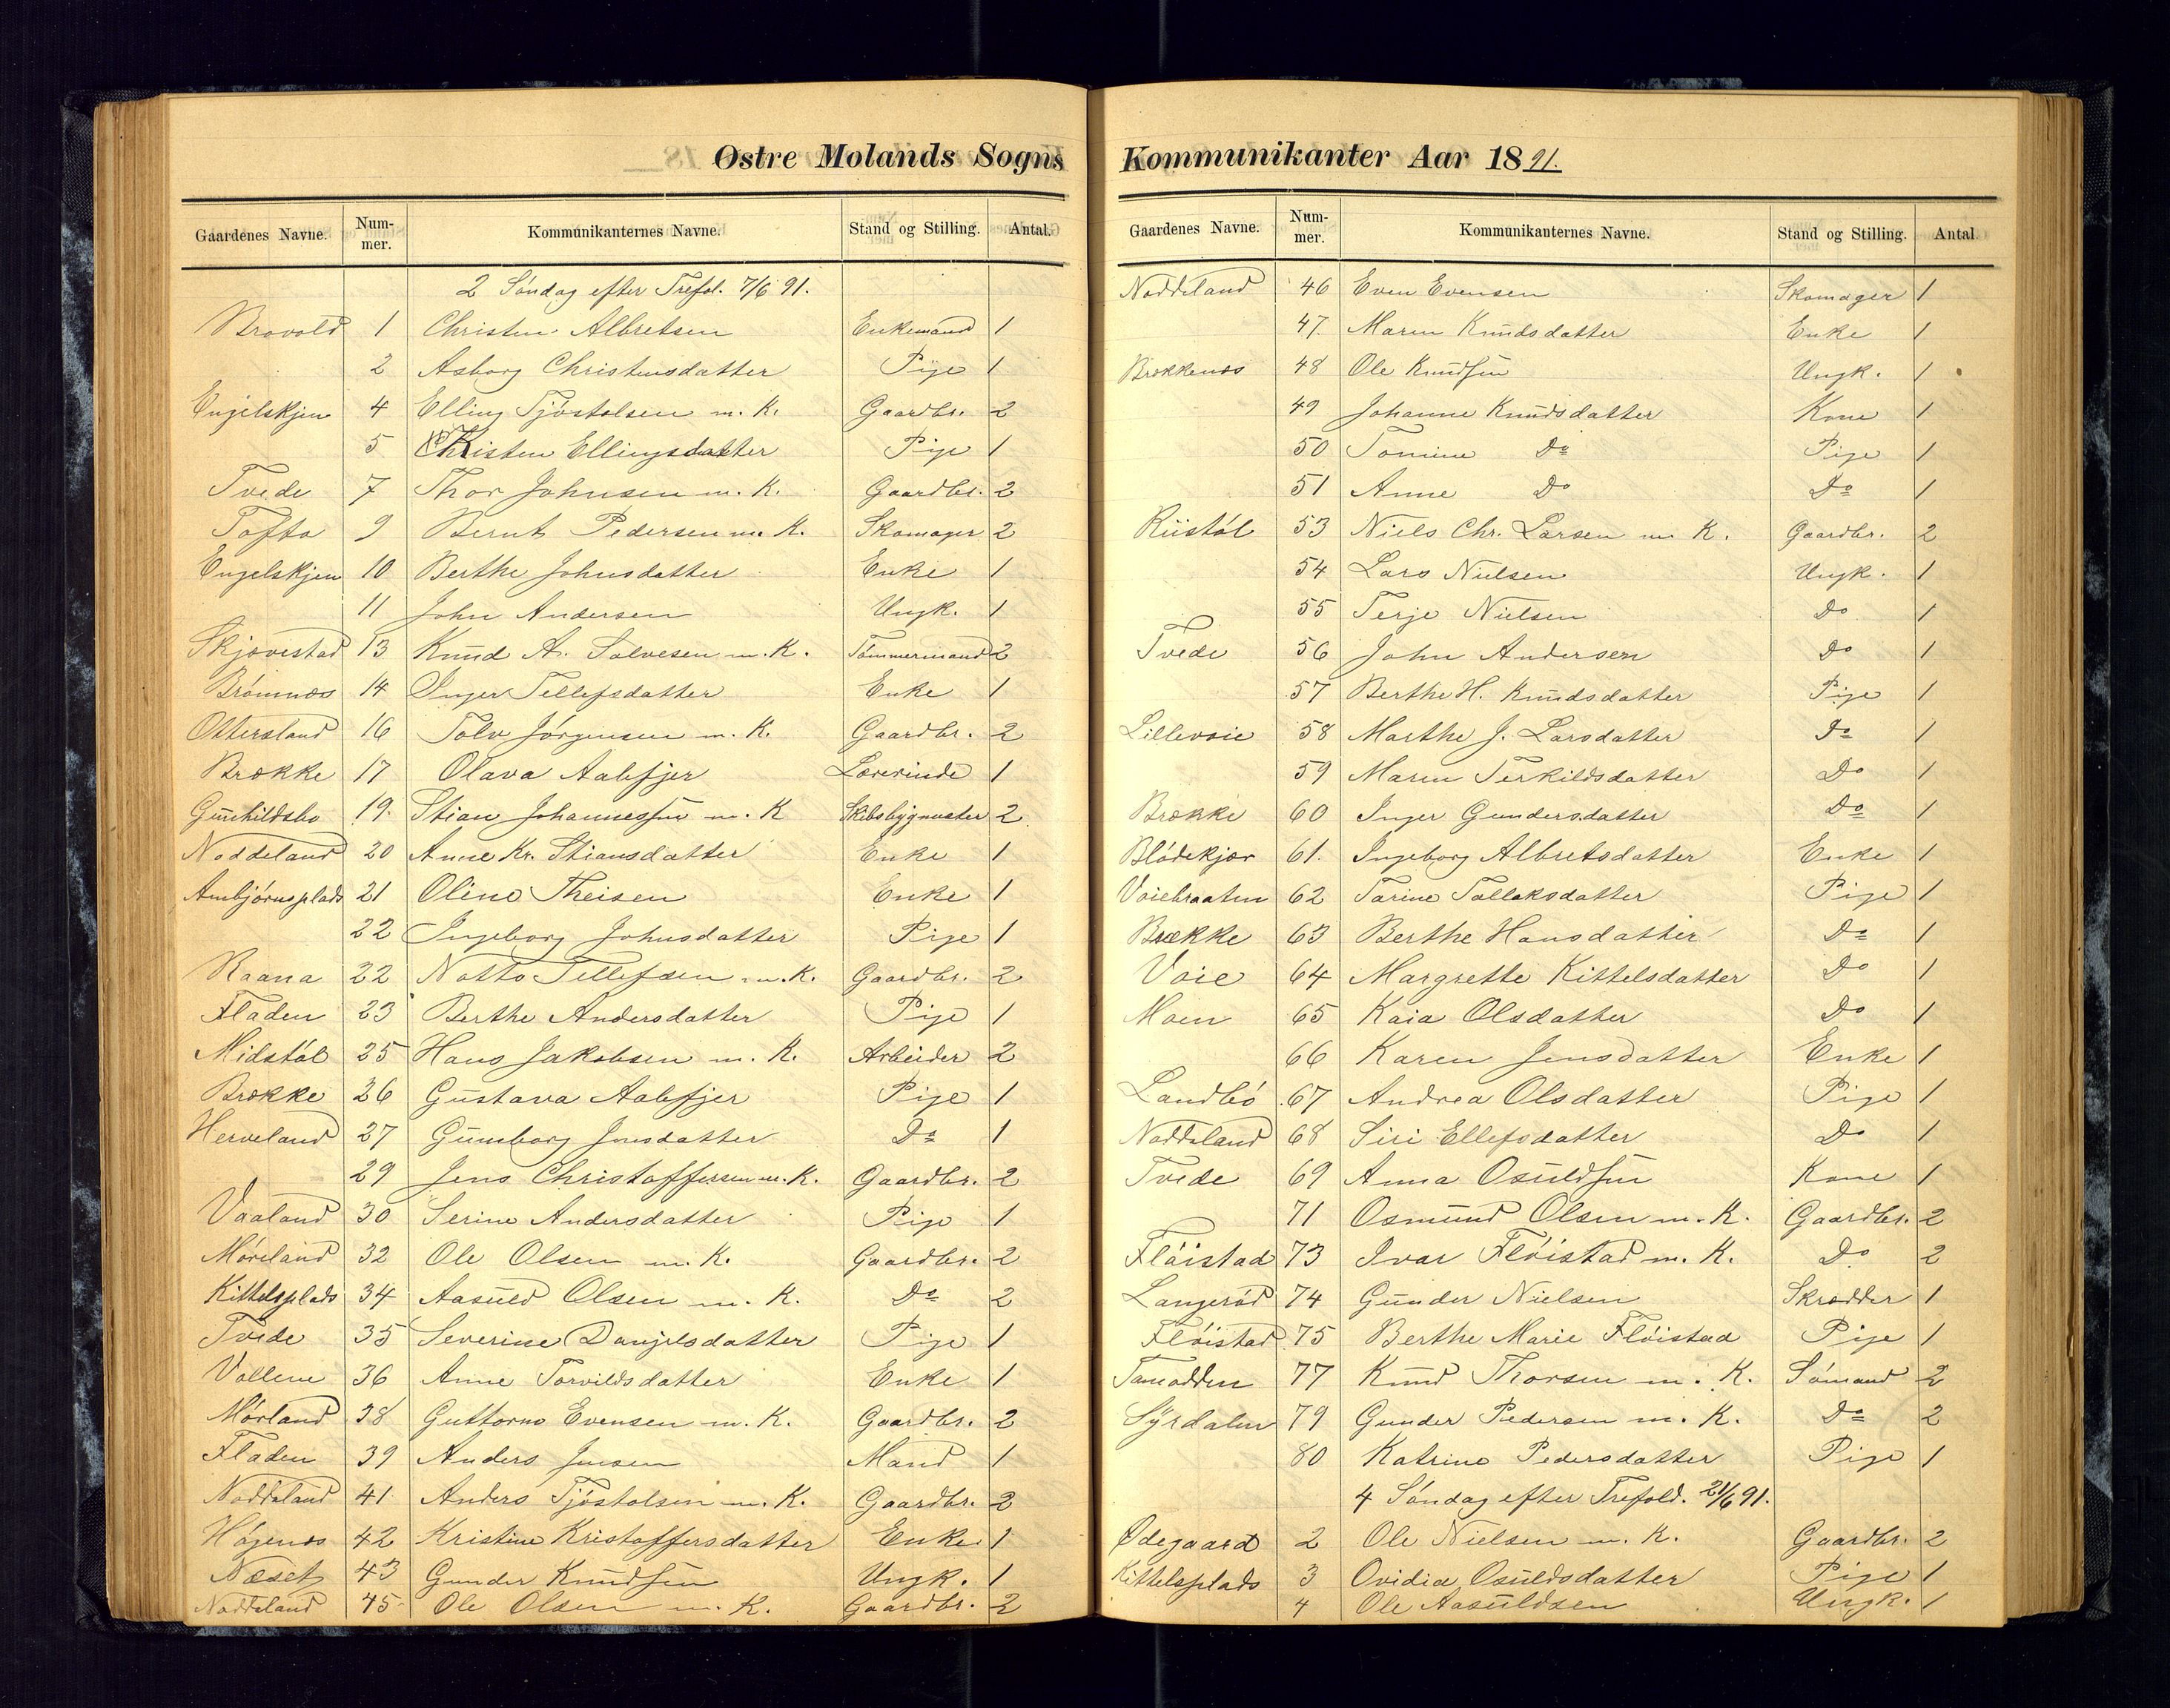 Østre Molands Sogns
Gaardenes Navne. Num-mer. Kommunikanternes Navne. Stand og Stilling. Antal.
2 Søndag efter Trefol. 7/6 91.
Brovold 1 Christen Albretsen Enkemand 1
2 Asborg Christensdatter Pige 1
Engelskjen 4 Elling Tjøstolsen m. K. Gaardbr. 2
5 Kristen Ellingsdatter Pige 1
Tvede 7 Thor Johnsen m. K. Gaardbr. 2
Tofta 9 Bernt Pedersen m. K. Skomager 2
Engelskjen 10 Berthe Johnsdatter Enke 1
11 John Andersen Ungk. 1
Skjævestad 13 Knud A. Salvesen m. K. Tømmermand 2
Brømnæs 14 Inger Tellefsdatter Enke 1
Ottersland 16 Tolv Jørgensen m. K. Gaardbr. 2
Brække 17 Olava Aalefjer Lærerinde 1
Gunhildsbo 19. Stian Johannessen m. K Skibsbygmester 2
Noddeland 20 Anne Kr. Stiansdatter Enke 1
Ambjørnsplads 21 Oline Theisen Enke 1
22 Ingeborg Johnsdatter Pige 1
Raana 22 Notto Tellefsen m. K. Gaardbr. 2
Fladen 23 Berthe Andersdatter Pige 1
Midstøl 25 Hans Jakobsen m. K. Arbeider 2
Brække 26 Gustava Aalefjer Pige 1
Herveland 27 Gunborg Jensdatter Do 1
29 Jens Christoffersen m. K. Gaardbr. 2
Vaaland 30 Serine Andersdatter Pige 1
Møreland 32 Ole Olsen m. K. Gaardbr. 2
Kittelsplads 34 Aasuld Olsen m. K. Do 2
Tvede 35 Severine Danjelsdatter Pige 1
Vollene 36 Anne Torvildsdatter Enke 1
Mørland 38 Guttorm Evensen m. K. Gaardbr. 2
Fladen 39 Anders Jensen Mand 1
Noddeland 41 Anders Tjøstolsen m. K. Gaardbr. 2
Høgenæs 42 Kristine Kristoffersdatter Enke 1
Næset 43 Gunder Knudsen Ungk. 1
Noddeland 45 Ole Olsen m. K. Gaardbr. 2
Kommunikanter Aar 1891.
Gaardenes Navne. Num-mer. Kommunikanternes Navne. Stand og Stilling. Antal.
Noddeland 46 Even Evensen Skomager 1
47. Maren Knudsdatter Enke 1
Brækkenæs 48 Ole Knudsen Ungk. 1
49 Johanne Knudsdatter Kone 1
50 Tomine Do Pige 1
51 Anne Do Do 1
Riistøl 53 Niels Chr. Larsen m. K. Gaardbr. 2
54 Lars Nielsen Ungk. 1
55 Terje Nielsen Do 1
Tvede 56 John Andersen Do 1
57 Berthe H. Knudsdatter Pige 1
Lillevoie 58 Marthe J. Larsdatter Do 1
59 Maren Terkildsdatter Do 1
Brække 60 Inger Gundersdatter Do 1
Blødekjær 61. Ingeborg Albretsdatter Enke 1
Voiebraaten 62 Tarine Tallaksdatter Pige 1
Brække 63 Berthe Hansdatter Do 1
Voie 64 Margrette Kittelsdatter Do 1
Moen 65 Kaia Olsdatter Do 1
66 Karen Jensdatter Enke 1
Landbø 67 Andrea Olsdatter Pige 1
Noddeland 68 Siri Ellefsdatter Do 1
Tvede 69 Anna Osuldsen Kone 1
71 Osmund Olsen m. K. Gaardbr. 2
Fløistad 73 Ivar Fløistad m. K. Do 2
Langerød 74 Gunder Nielsen Skrædder 1
Fløistad 75 Berthe Marie Fløistad Pige 1
77 Knud Thorsen m. K. Sømand 2
Syrdalen 79 Gunder Pedersen m. K. Do 2
80 Katrine Pedersdatter Pige 1
4 Søndag efter Trefold. 21/6 91.
Ødegaard 2 Ole Nielsen m. K. Gaardbr. 2
Kittelsplads 3 Ovidia Osuldsdatter Pige 1
4 Ole Aasuldsen Ungk. 1